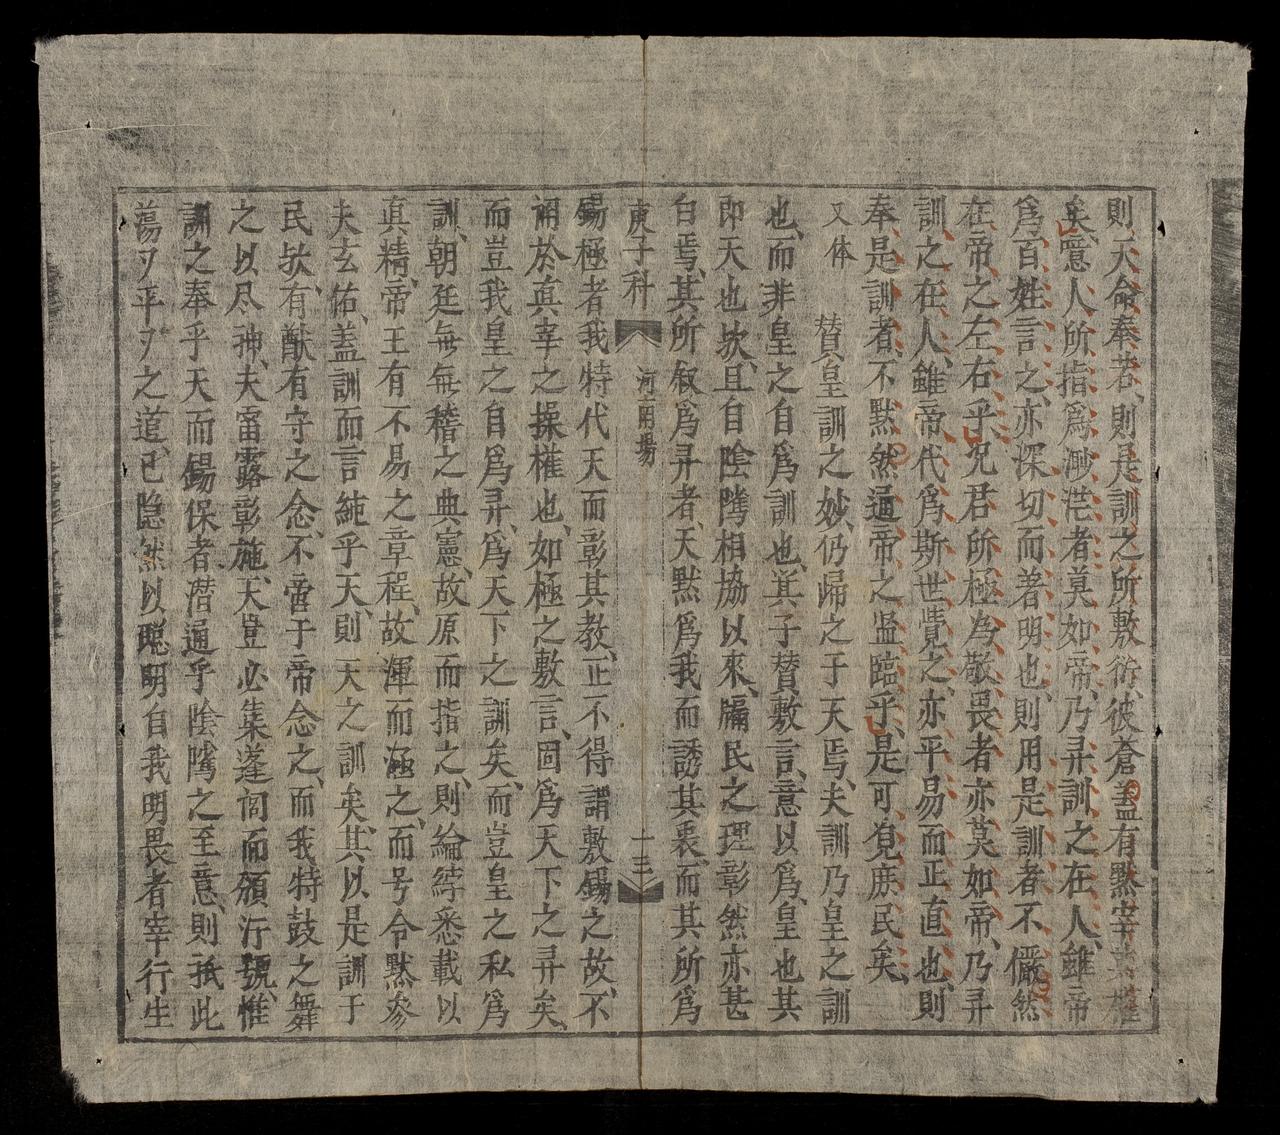 則天命奉若、則是訓之所敷衍、彼蒼蓋有默宰其權
矣、噫、人所指爲渺茫者莫如帝、乃弄訓之在人、錐帝
爲百姓言之、亦深切而著明也、則用是訓者不儼然
在帝之左右乎、况君所極爲敬畏者亦莫如帝、乃弄
訓之在人、錐帝代爲斯世覺之、亦平易而正直也、則
奉是訓者、不默然通帝之监臨乎、是可覓庶民矣、
又体 賛皇訓之妙、仍歸之于天焉、夫訓乃皇之訓
也、而非皇之自爲訓也、箕子賛敷言、意以爲、皇也其
即天也欤、且自陰隲相協以來、牖民之理彰然亦甚
白焉、其所叙爲弄者、天默爲我而誘其衷、而其所爲
庚子科 河南場 十三
錫極者我特代天而彰其教、正不得謂敷錫之故、不
甪於眞宰之操權也、如極之敷言、固爲天下之弄矣、
而豈我皇之自爲弄、爲天下之訓矣、而豈皇之私爲
訓、朝廷無無稽之典憲、故原而指之、則綸綍悉載以
眞精、帝王有不易之章程、故渾而涵之、而号令默參
夫玄佑、蓋訓而言純乎天、則天之訓矣、其以是訓于
民欤、有猷有守之念、不啻于帝念之、而我特鼓之舞
之以尽神、夫雷露彰施、天豈必集蓬闾而頒行號、惟
訓之奉乎天而錫保者、潛通乎陰隲之至意、則抵此
蕩ヲ平ヲ之道、已隐然以聰明自我明畏者宰行生